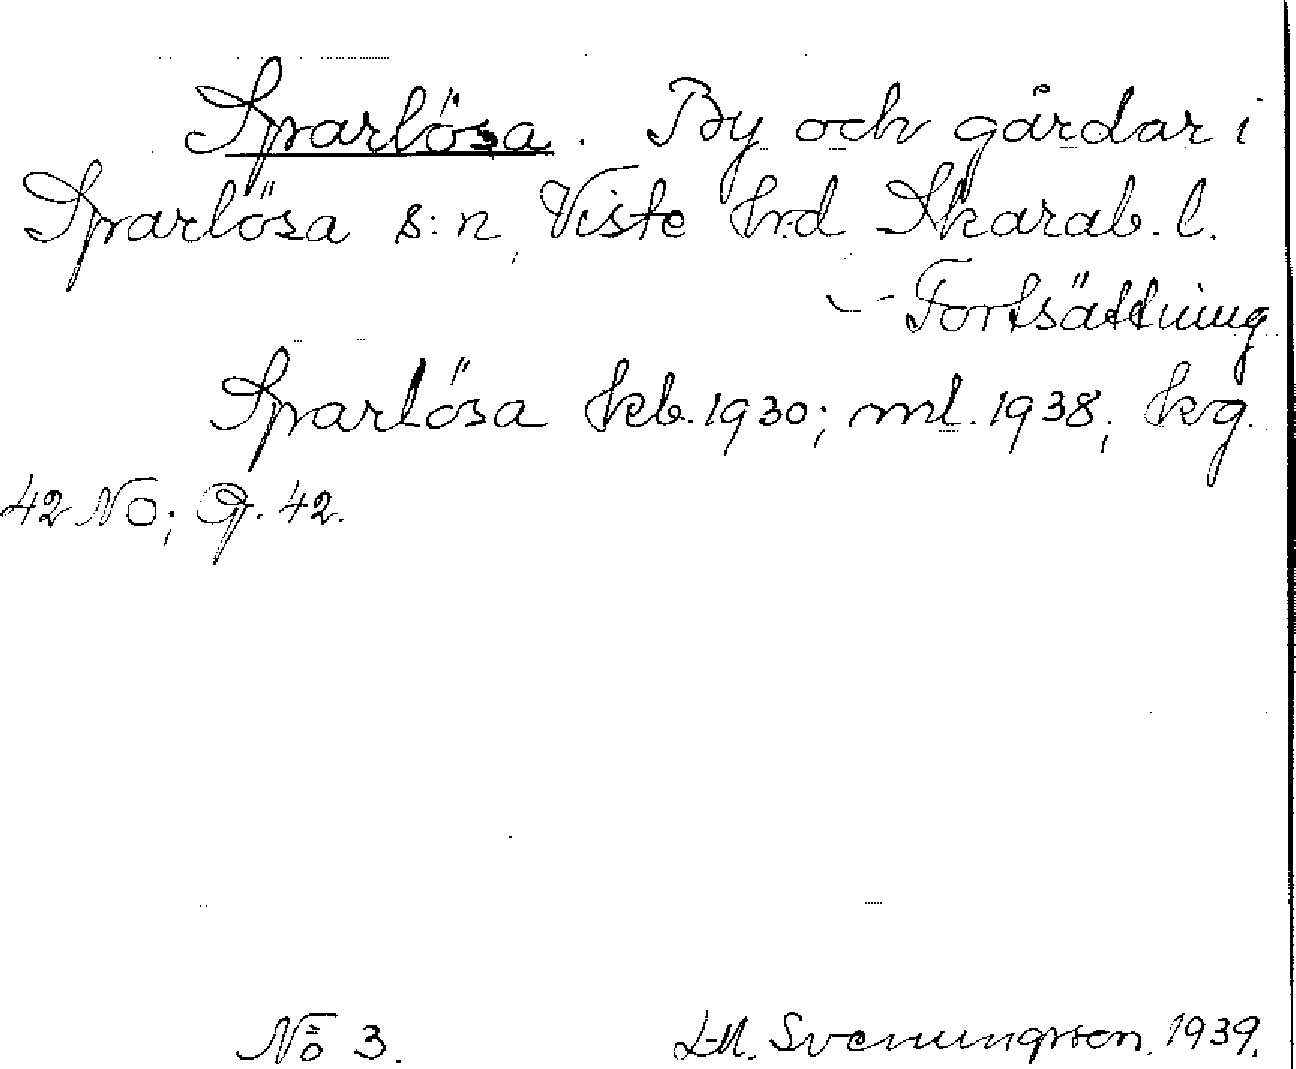 Sparlösa. By och gårdar i
Sparlösa s:n, Viste hrd Skarab. l.
- Fortsättning
Sparlösa kb. 1930; ml. 1938; kg.
42 NO; G. 42.
No 3.
Svenungsson. 1939.